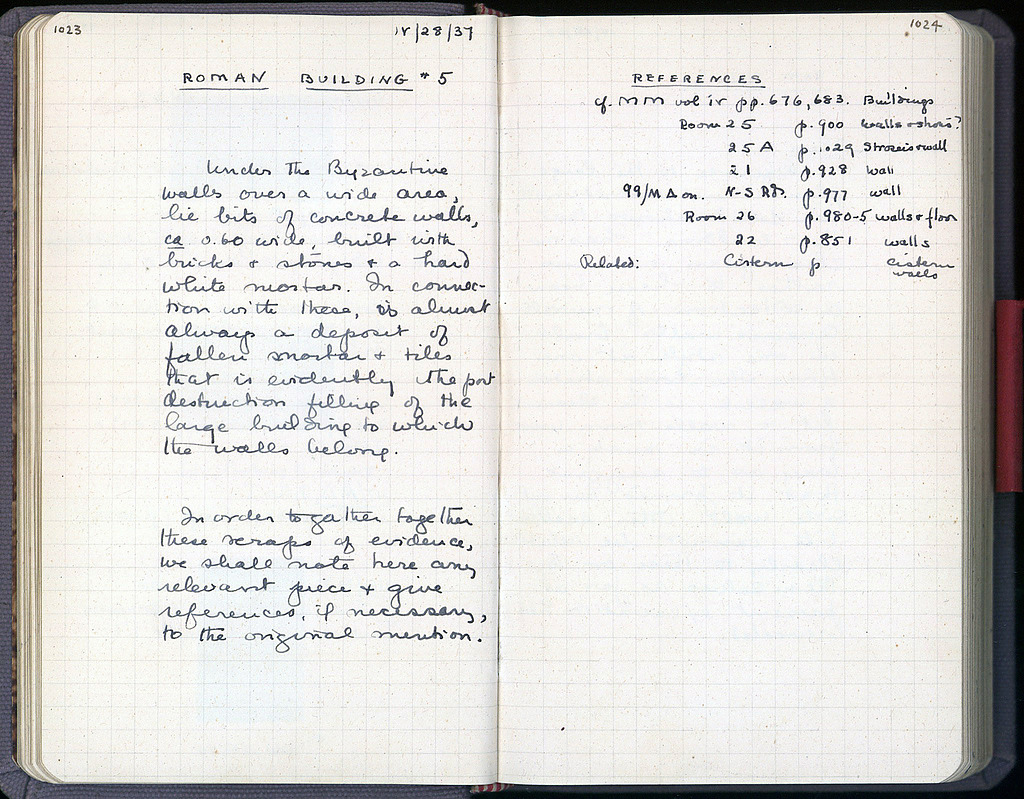 1023
IV/28/37
ROMAN BUILDING # 5
Under the Byzantine
walls over a wide area,
lie bits of concrete walls,
ca 0.60 wide, built with
bricks & stones & a hard
white mortar. In connec-
tion with these, is almost
always a deposit of
fallen mortar & tiles
that is evidently the post
destruction filling of the
large building to which
the walls belong.
In order to gather together
these scraps of evidence,
we shall note here any
relevant piece & give
references, if necessary,
to the original mention.
1024
REFERENCES
cf. MM vol IV pp. 676, 683. Buildings
Room 25 p. 900 walls
25 A p. 1029 wall
21 p. 928 wall
99/MΔ on. N-S Rd. p. 977 wall
Room 26 p. 980-5 walls & floor
22 p. 851 walls
Related: Cistern p cistern
walls